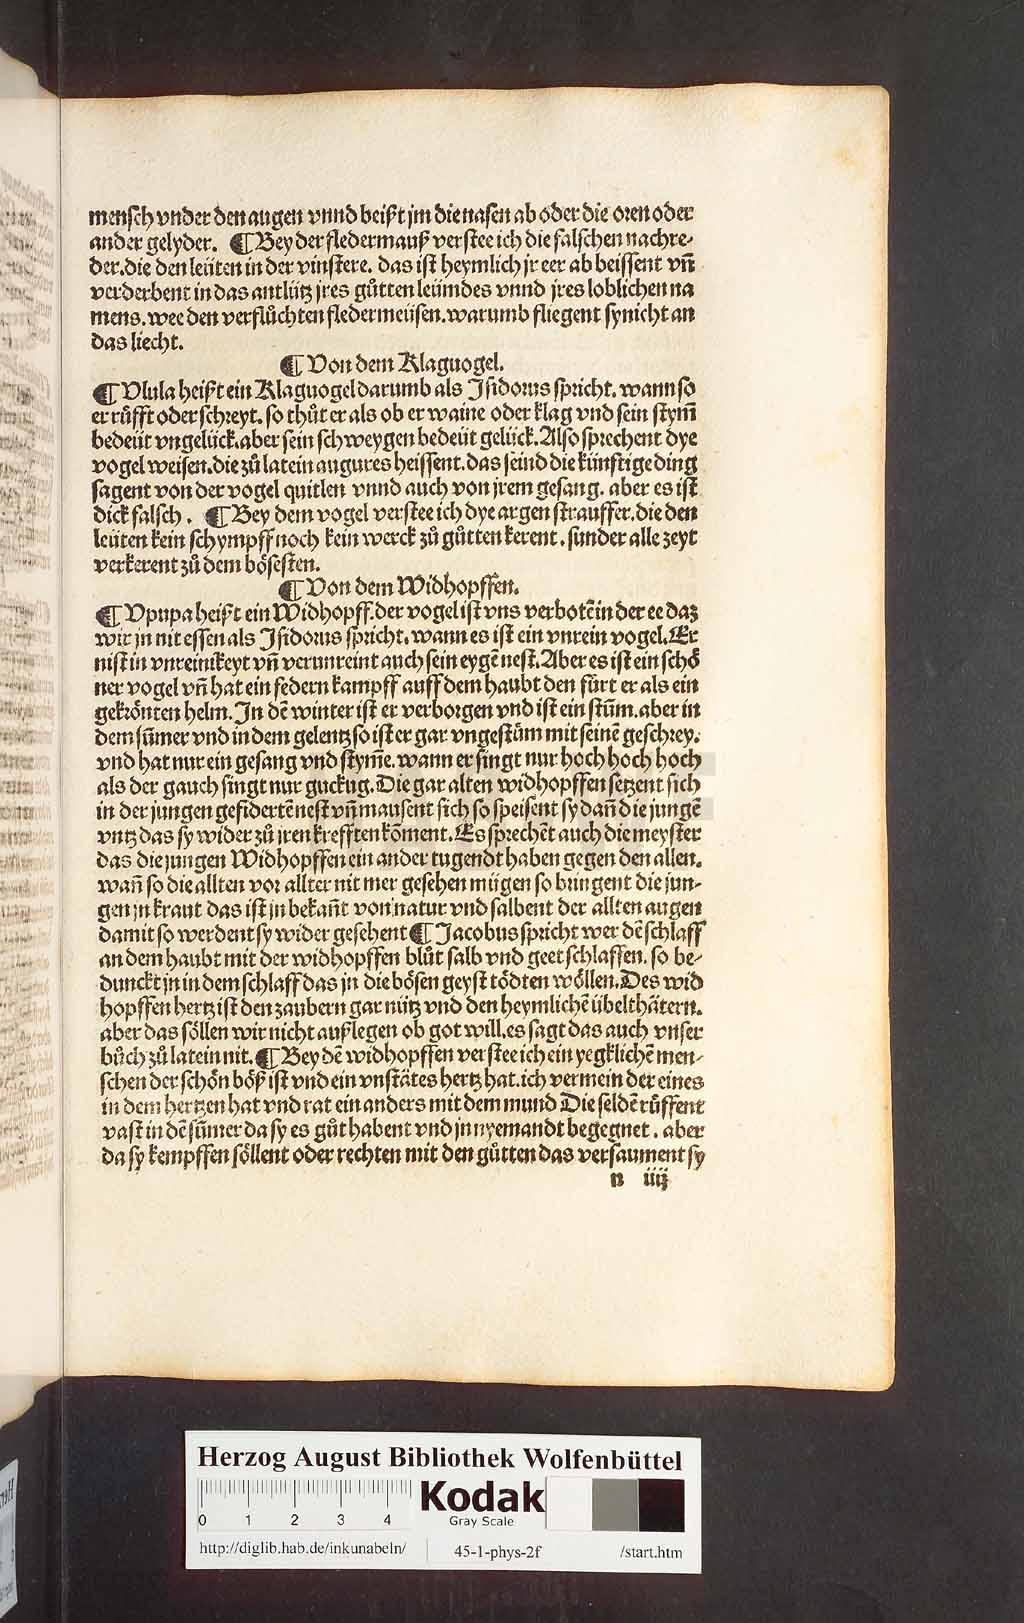 mensch vnder den augen vnnd beißt jm die nasen ab oder die oren oder
ander gelyder. ¶ Bey der fledermauß verstee ich die falschen nachre-
der. die den leüten in der vinstere. das ist heymlich jr eer ab beissent vn̄
verderbent in das antlütz jres gůtten leümdes vnnd jres loblichen na
mens. wee den verflůchten fledermeüsen. warumb fliegent sy nicht an
das liecht.
¶ Von dem Klaguogel.
¶ Vlula heißt ein Klaguogel darumb als Isidorus spricht. wann so
er růfft oder schreyt. so thůt er als ob er waine oder klag vnd sein stym̄
bedeüt vngelück. aber sein schweygen bedeüt gelück. Also sprechent dye
vogel weisen. die zů latein augures heissent. das seind die künftige ding
sagent von der vogel quitlen vnnd auch von jrem gesang. aber es ist
dick falsch. ¶ Bey dem vogel verstee ich dye argen strauffer. die den
leüten kein schympff noch kein werck zů gůtten kerent. sunder alle zeyt
verkerent zů dem bösesten.
¶ Von dem Widhopffen.
¶ Vpupa heißt ein Widhopff. der vogel ist vns verbotē in der ee daz
wir jn nit essen als Isidorus spricht. wann es ist ein vnrein vogel. Er
nist in vnreinikeyt vn̄ verunreint auch sein eygē nest. Aber es ist ein schö
ner vogel vn̄ hat ein federn kampff auff dem haubt den fürt er als ein
gekrönten helm. In dē winter ist er verborgen vnd ist ein stūm. aber in
dem sūmer vnd in dem gelentz so ist er gar vngestüm mit seinē geschrey.
vnd hat nur ein gesang vnd stym̄e. wann er singt nur hoch hoch hoch
als der gauch singt nur guckug. Die gar alten widhopffen setzent sich
in der jungen gefidertē nest vn̄ mausent sich so speisent sy dan̄ die jungē
vntz das sy wider zů jren krefften kōment. Es sprechēt auch die meyster
das die jungen Widhopffen ein ander tugendt haben gegen den allen.
wan̄ so die allten vor allter nit mer gesehen mügen so bringent die jun-
gen jn kraut das ist jn bekan̄t von natur vnd salbent der allten augen
damit so werdent sy wider gesehent ¶ Jacobus spricht wer dē schlaff
an dem haubt mit der widhopffen blůt salb vnd geet schlaffen. so be-
dunckt jn in dem schlaff das jn die bösen geyst tödten wöllen. Des wid
hopffen hertz ist den zaubern gar nütz vnd den heymlichē übelthätern.
aber das söllen wir nicht außlegen ob got will. es sagt das auch vnser
bůch zů latein nit. ¶ Bey dē widhopffen verstee ich ein yegklichē men-
schen der schön böß ist vnd ein vnstätes hertz hat. ich vermein der eines
in dem hertzen hat vnd rat ein anders mit dem mund Die seldē růffent
vast in dē sūmer da sy es gůt habent vnd jn nyemandt begegnet. aber
da sy kempffen söllent oder rechten mit den gůtten das versaument sy
n iiij
Herzog August Bibliothek Wolfenbüttel
0 1 2 3 4
Kodak
Gray Scale
http://diglib.hab.de/inkunabeln/ 45-1-phys-2f /start.htm